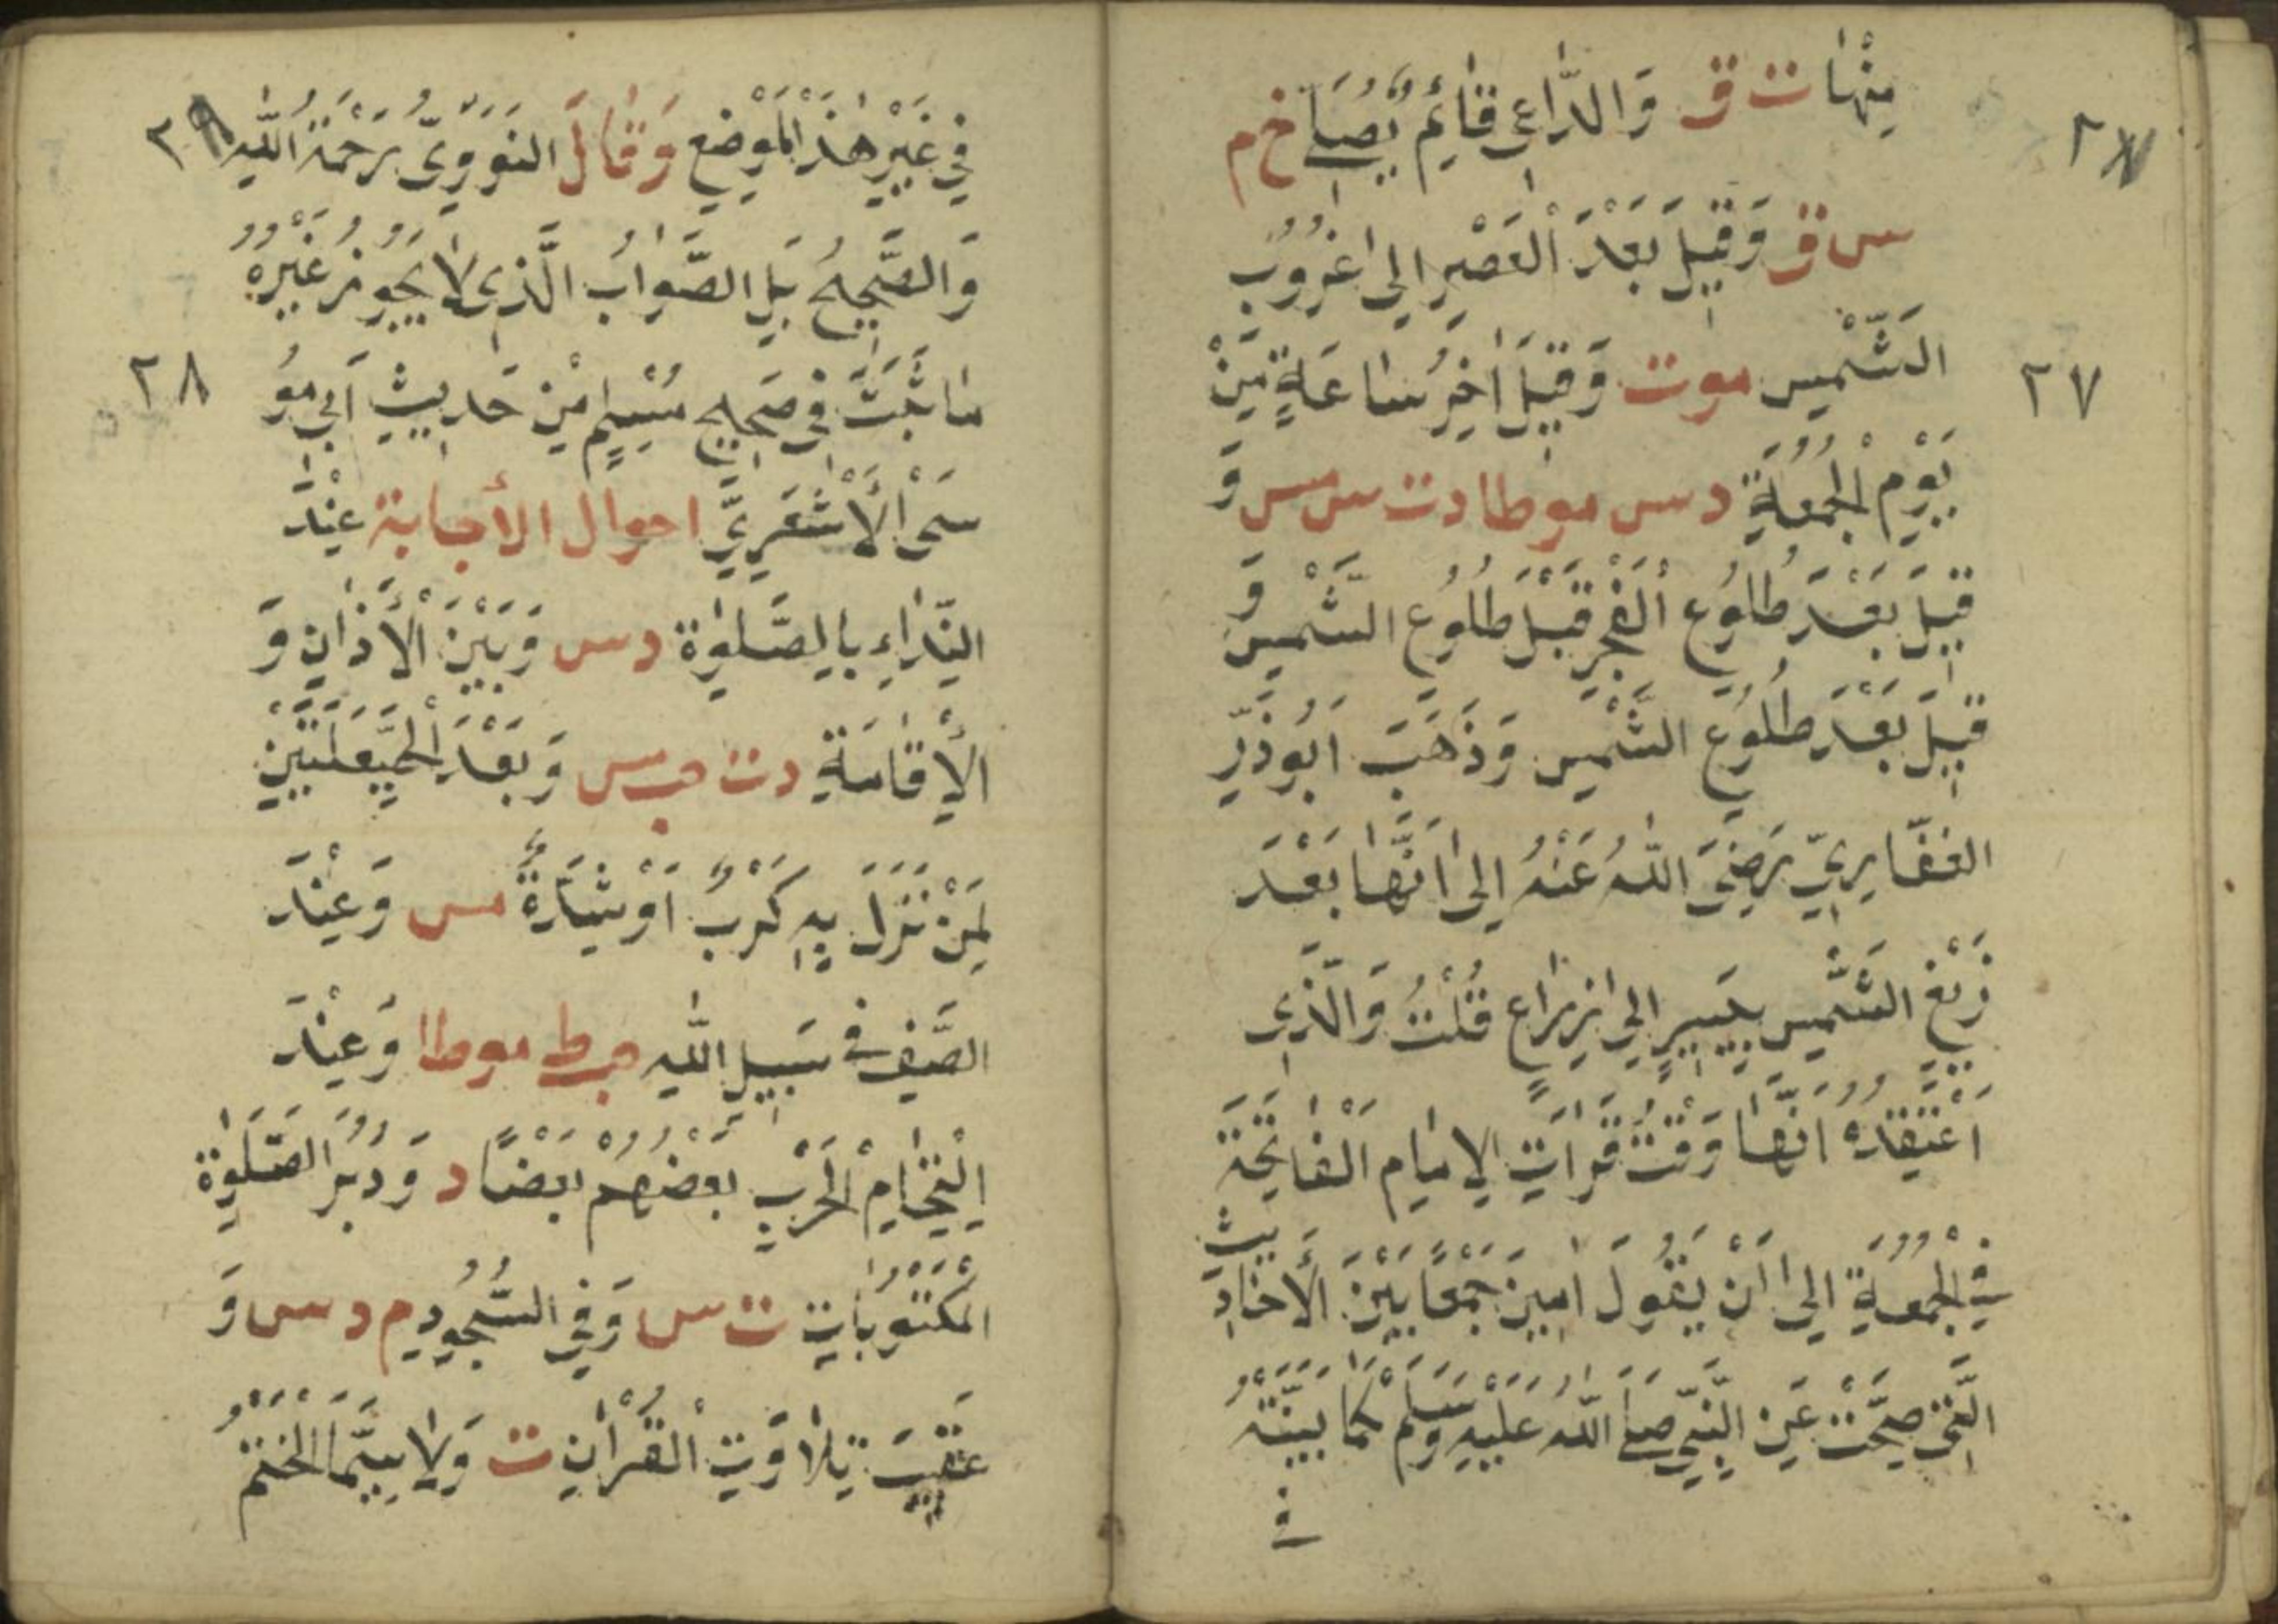 ٢٧
مِنْهَا ت ق وَالدَّاعِي قَائِمٌ يُصَلِّي خ م
س ق وَقِيلَ بَعْدَ الْعَصْرِ إِلى غُرُوبِ
الشَّمْسِ موت وَقِيلَ اٰخِرُ سَاعَةٍ مِّنْ
٢٧
يَوْمِ الْجُمُعَةِ د س موطا د ت س مس وَ
قِيلَ بَعْدَ طُلُوعِ الْفَجْرِ قَبْلَ طُلُوعِ الشَّمْسِ وَ
قِيلَ بَعْدَ طُلُوعِ الشَّمْسِ وَذَهَبَ اَبُو ذَرٍّ
الغفَّارِيّ رَضِيَ اللّٰهُ عَنْهُ اِلى اَنَّهَا بَعْدَ
زَيْغِ الشَّمْسِ بِيَسِيرٍ اِلى ذِرَاعٍ قُلْتُ وَالَّذِي
اَعْتَقِدُهُ اَنَّهَا وَقْتُ قَرَاٰتِ الْاِمَامِ الْفَاتِحَةَ
فِي الْجُمُعَةِ اِلى اَنْ يَقُولَ اٰمِينَ جَمْعًا بَيْنَ الْأَحَادِيثِ
الَّتِي صَحَّتْ عَنِ النَّبِيِّ صَلَّى اللّٰهُ عَلَيْهِ وَسَلَّمْ كَمَا بَيَّنْتُهُ
فِي
٢٨
فِي غَيْرِ هٰذَا الْمَوْضِعِ وَقَالَ النَّوَوِيُّ رَحْمَةُ اللّٰهِ
وَالصَّحِيحُ بَلِ الصَّوَابُ الَّذِي لَا يَجُوزُ غَيْرُهُ
مَا ثَبَتَ فِي صَحِيحِ مُسْلِمٍ مِنْ حَدِيثِ اَبِي مُو
٢٨
سَى الْأَشْعَرِيِّ احوال الأجابة عِنْدَ
النِّدَاءِ بِالصَّلٰوةِ د س وَبَيْنَ الْأَذَانِ وَ
الْإِقَامَةِ د ت حب س وَبَعْدَ الْحَيْعَلَتَيْنِ
لِمَنْ نَزَلَ بِهِ كَرْبٌ اَوْ شِدَّةٌ مس وَعِنْدَ
الصَّفِّ فِي سَبِيلِ اللّٰهِ حب ط موطا وَعِنْدَ
اِلْتِحَامِ الْحَرْبِ بَعْضُهُمْ بَعْضًا د وَدُبُرَ الصَّلٰوةِ
الْمَكْتُوبَاتِ ت س وَفِي السُّجُودِ م د س وَ
عَقِيبَ تِلَاوَتِ الْقُرْاٰنِ ت وَلَا سِيَّمَا الْخَتْمُ